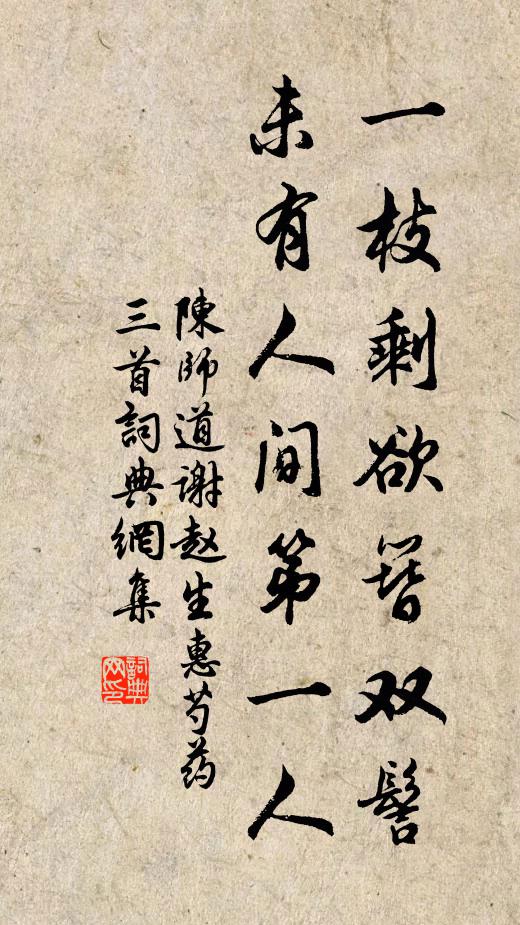 一枝剩欲簪双髻
未有人间第一人
陳師道谢赵生惠芍药
三首詞典網集
詞典网印